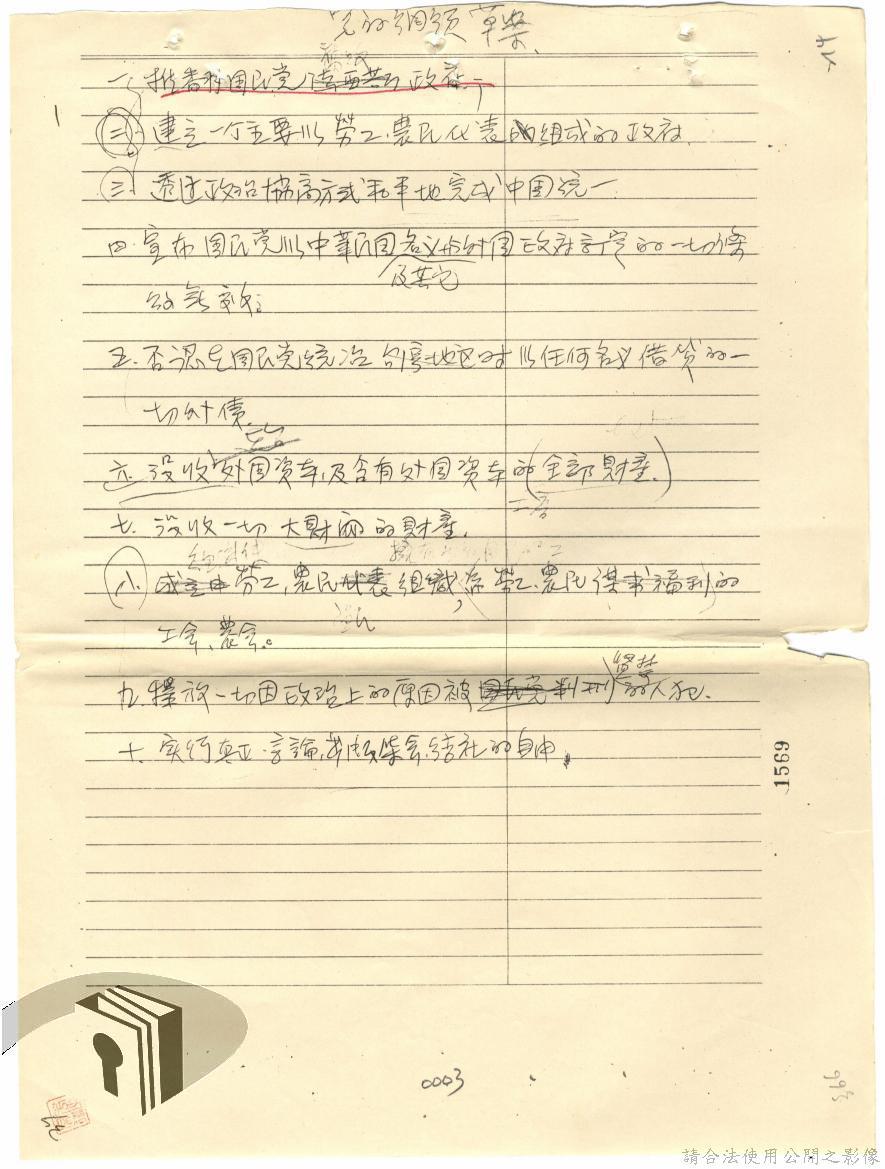 党的綱领草案
一、推翻国民党 政府
(二)建立一个主要以勞工、農民代表組成的政府.
三.透过政治協商方式和平地完成中国统一
四.宣布国民党以中華民国名义与外国政府訂定的一切條
及其它
约無效;
五.否認在国民党统治台湾地区时以任何名义借贷的一
切外债.
六.没收外国资本,及含有外国资本的(全部財產.)
七.没收一切大財閥的財產.
(八.)成立由勞工,農民代表組織,为勞工、農民謀求福利的
工会、農会。
九.釋放一切因政治上的原因被国民党判刑的人犯.
監禁
十.实行真正言論,出版集会,结社的自由。
1569
0003
請合法使用公開之影像